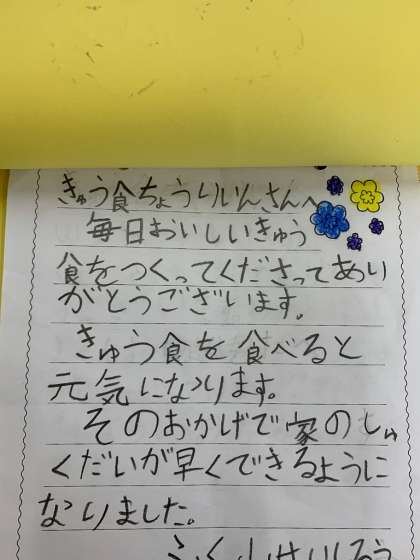 きゅう食ちょうりいんさんへ
毎日おいしいきゅう
食をつくってくださってあり
がとうございます。
きゅう食を食べると
元気になります。
そのおかげで家のしゅ
くだいが早くできるように
なりました。